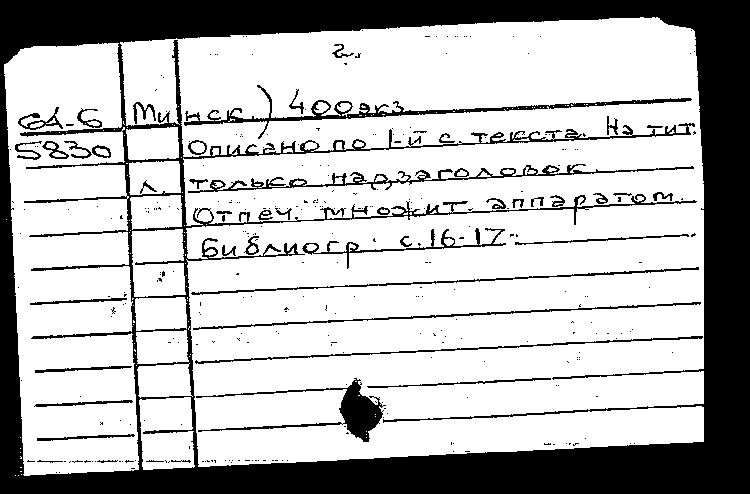 2.
Минск.) 400экз.
6А-6
5830 Описано по 1-й с. текста. На тит.
л. только надзаголовок.
Отпеч. множит. аппаратом.
Библиогр: с.16-17.